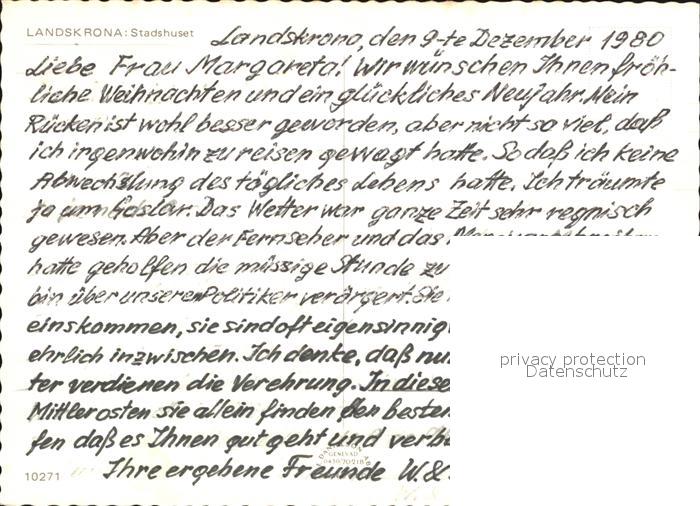 LANDSKRONA: Stadshuset
Landskrona, den 9-te Dezember 1980
Liebe Frau Margareta! Wir wünschen Ihnen fröh-
liche Weihnachten und ein glückliches Neujahr. Mein
Rücken ist wohl besser geworden, aber nicht so viel, daß
ich irgenwohin zu reisen gewagt hatte. So daß ich keine
Abwechslung des tägliches Lebens hatte. Ich träumte
ja um Goslar. Das Wetter war ganze Zeit sehr regnisch
gewesen. Aber der Fernseher und das
hatte geholfen die müssige Stunde zu
bin über unseren Politiker verärgert. Sie
einskommen, sie sind oft eigensinnig
ehrlich inzwischen. Ich denke, daß nu
ter verdienen die Verehrung. In diese
Mittlerosten sie allein finden den besten
fen daß es Ihnen gut geht und verb
Ihre ergebene Freunde W. &
10271
privacy protection
Datenschutz